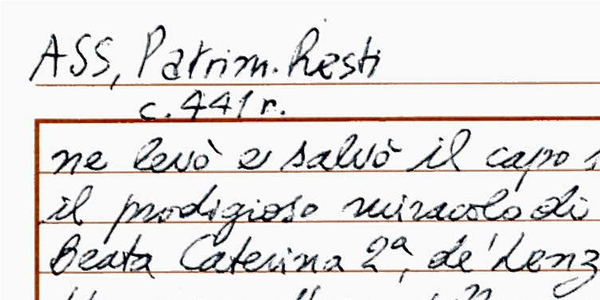 ASS, Patrim. Resti
c. 441 r.
ne levò e salvò il capo
il prodigioso miracolo di
Beata Caterina 2ª, de' Lenz